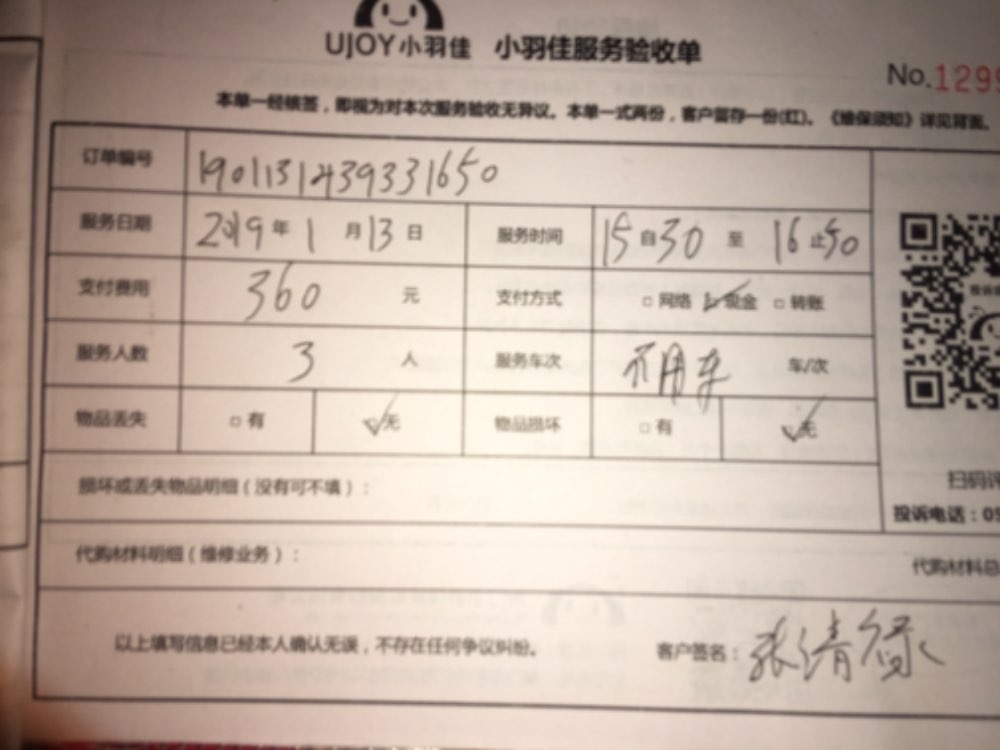 UJOY小羽佳 小羽佳服务验收单
No.1299
本单一经核签，即视为对本次服务验收无异议。本单一式两份，客户留存一份(红)。《维保须知》详见背面。
订单编号 1901131439331650
服务日期 2019年1月13日 服务时间 15自30至16止50
支付费用 360元 支付方式 □网络 ☑现金 □转账
服务人数 3人 服务车次 不用车 车/次
物品丢失 □有 ☑无 物品损坏 □有 ☑无
损坏或丢失物品明细（没有可不填）：
扫码评
投诉电话：05
代购材料明细（维修业务）：
代购材料总
以上填写信息已经本人确认无误，不存在任何争议纠纷。 客户签名：张清